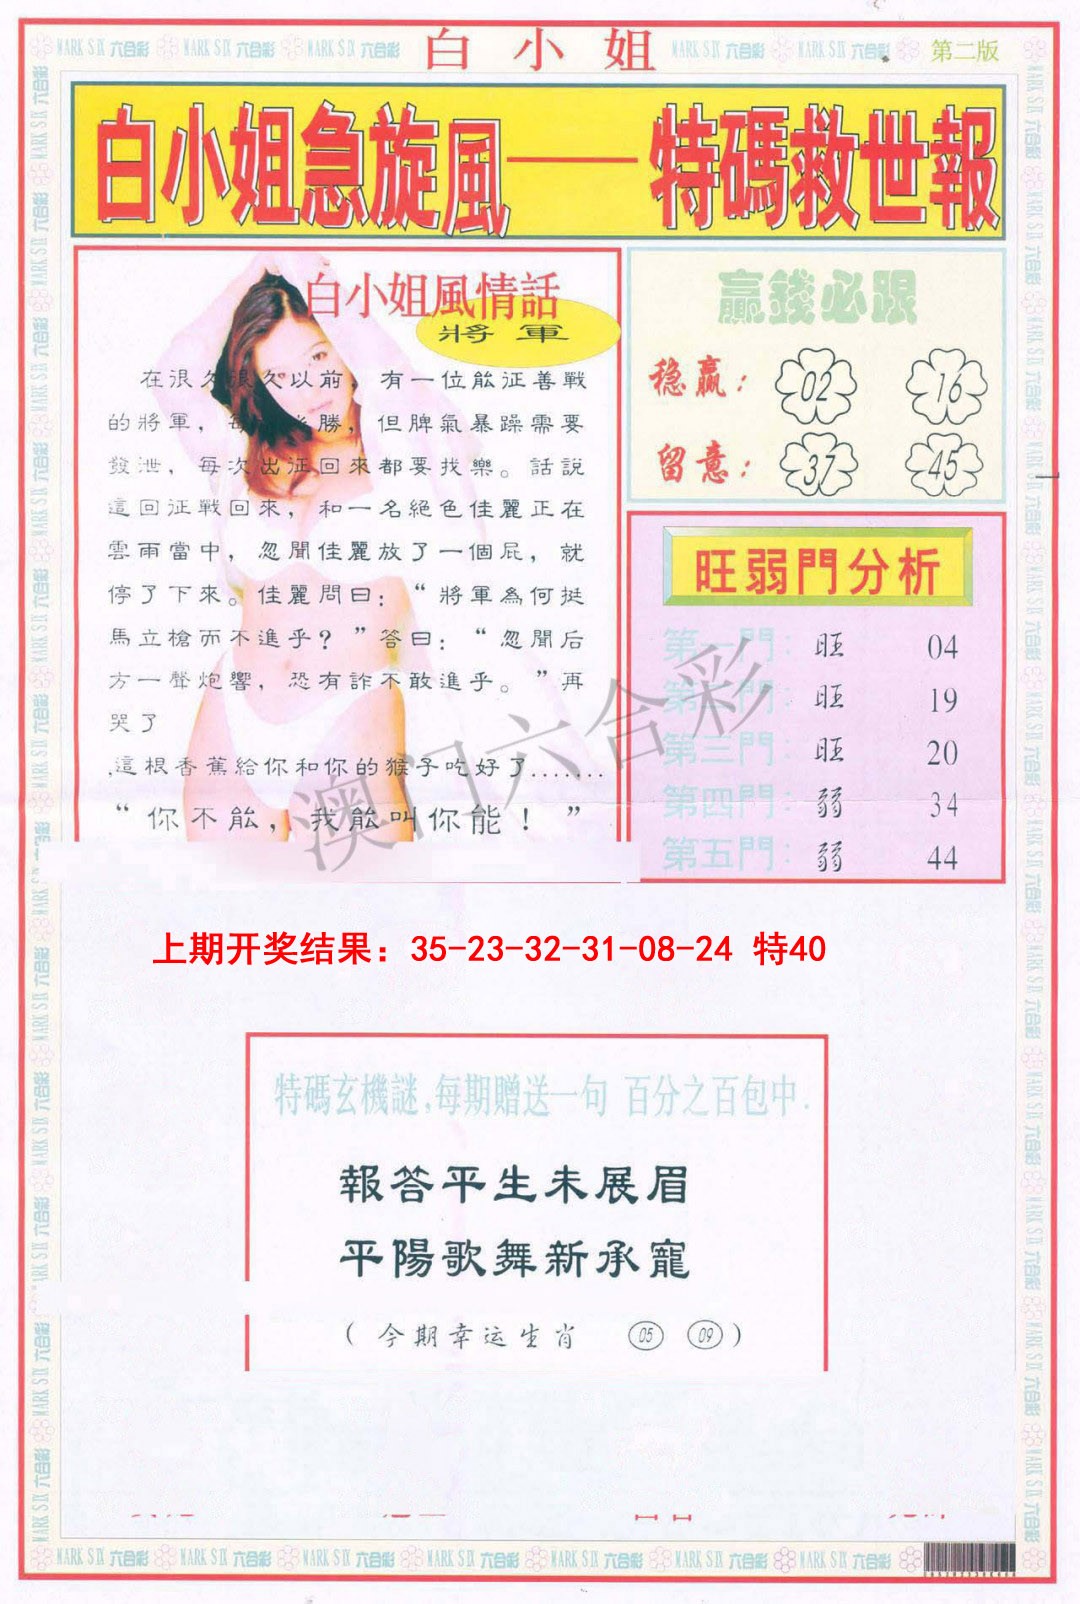 MARK SIX 六合彩 MARK SIX 六合彩 MARK SIX 六合彩 白小姐 MARK SIX 六合彩 MARK SIX 六合彩 第二版
白小姐急旋風——特碼救世報
白小姐風情話
將軍
在很久很久以前，有一位能征善戰
的將軍，每 勝，但脾氣暴躁需要
發泄，每次出征回來都要找樂。話說
這回征戰回來，和一名絕色佳麗正在
雲雨當中，忽聞佳麗放了一個屁，就
停了下來。佳麗問曰：“將軍為何挺
馬立槍而不進乎？”答曰：“忽聞后
方一聲炮響，恐有詐不敢進乎。”再
哭了
,這根香蕉給你和你的猴子吃好了.......
“你不能，我能叫你能！”
贏錢必跟
稳赢：02 16
留意：37 45
旺弱門分析
第一門：旺 04
第二門：旺 19
第三門：旺 20
第四門：弱 34
第五門：弱 44
澳门六合彩
上期开奖结果：35-23-32-31-08-24 特40
特碼玄機謎,每期贈送一句 百分之百包中.
報答平生未展眉
平陽歌舞新承寵
（今期幸运生肖 05 09）
MARK SIX 六合彩 MARK SIX 六合彩 MARK SIX 六合彩 MARK SIX 六合彩 MARK SIX 六合彩 MARK SIX 六合彩 MARK SIX 六合彩